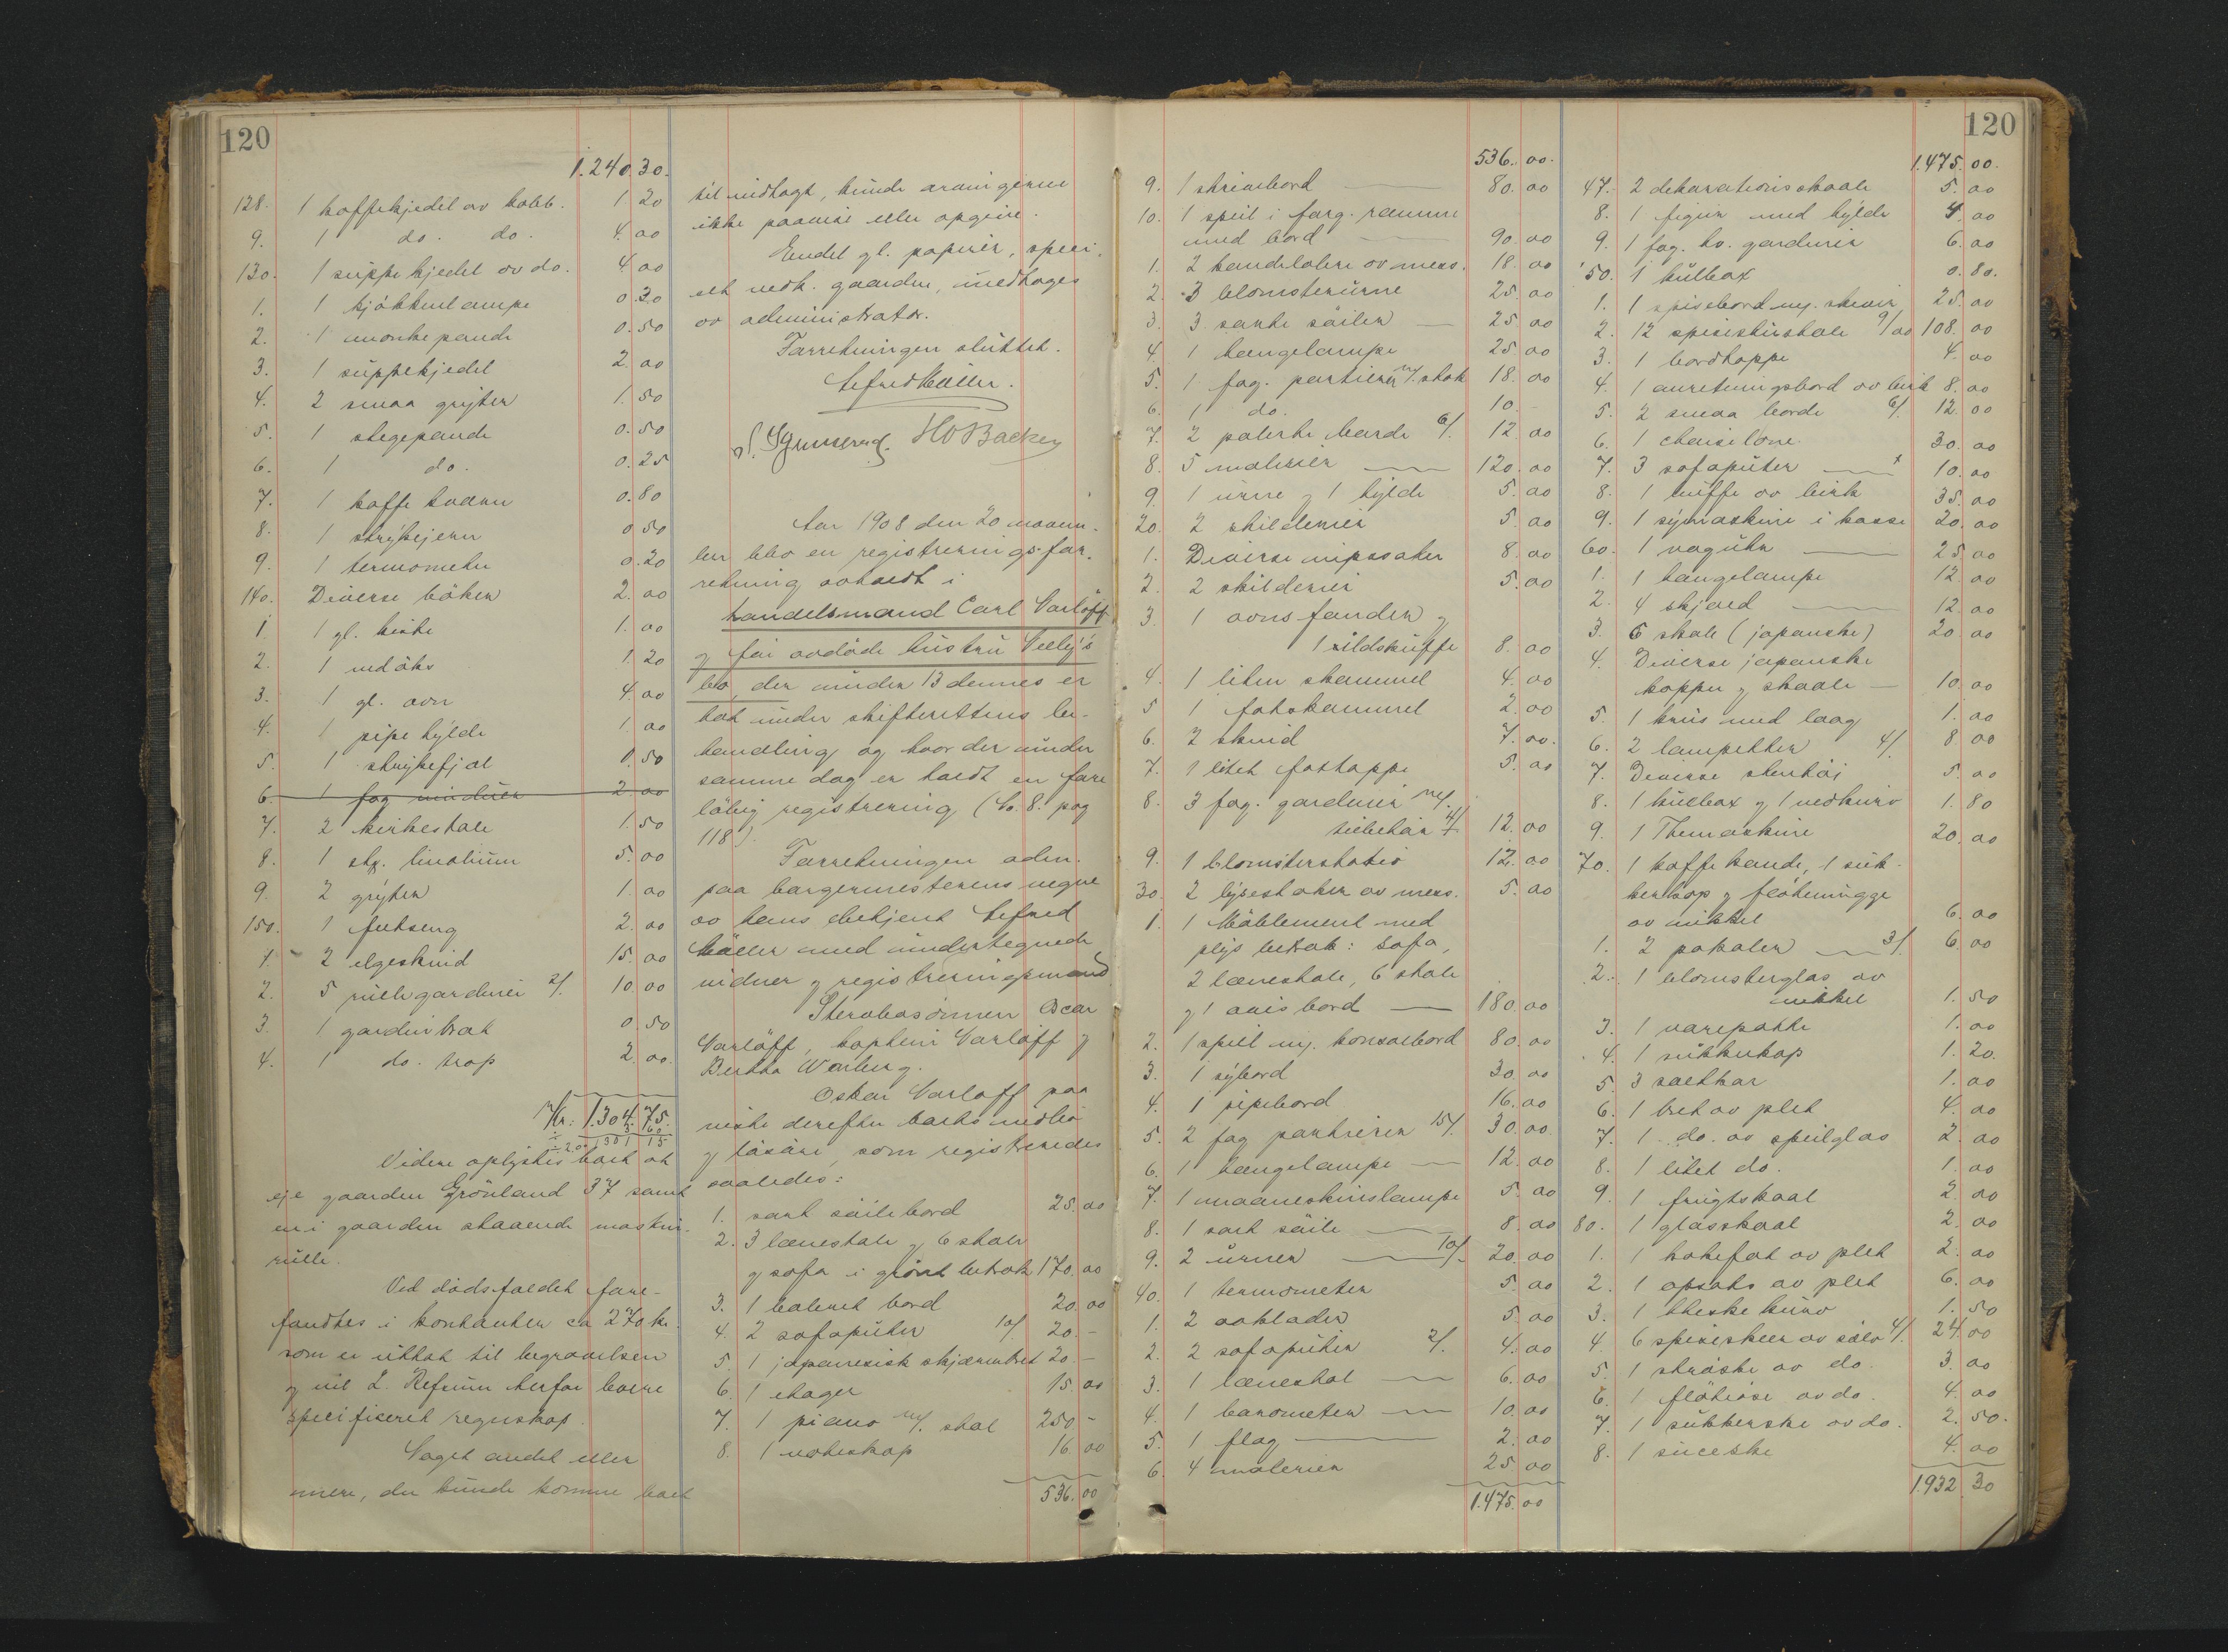 120
1.240.30.
128. 1 kaffekjedel av kobb. 1.20
9. 1 do. do. 4.00
130. 1 suppekjedel av do. 4.00
1. 1 kjøkkenlampe 0.30
2. 1 munkepande 0.50
3. 1 suppekjedel 2.00
4. 2 smaa gryter 1.50
5. 1 stegepande 0.50
6. 1 do. 0.25
7. 1 kaffe 0.80
8. 1 strykejern 0.50
9. 1 termometer 0.20
140. Diverse bøker 2.00
1. 1 gl. kiste 1.00
2. 1 vedøks 1.20
3. 1 gl. ovn 4.00
4. 1 pipehylde 1.00
5. 1 strykefjæl 0.50
6. 1 fag vinduer 2.00
7. 2 kirkestole 1.50
8. 1 stk. linolium 5.00
9. 2 gryter 1.00
150. 1 feltseng 2.00
1. 2 elgeskind 15.00
2. 5 rullegardiner 2/. 10.00
3. 1 gardintræk 0.50
4. 1 do. trap 2.00.
Kr: 1.304.75.
1301 15
Videre oplystes boet at
eje gaarden Grønland 37 samt
en i gaarden staaende maskin-
rulle.
Ved dødsfaldet fore-
fandtes i kontanter ca 270 kr.
som er uttat til begravelsen
og vil L. Refsum herfor levere
specificeret regnskap.
Noget andet eller
mere, der kunde komme boet
til indtægt, kunde arvingerne
ikke paavise eller opgive.
Endel gl. papirer, speci-
elt vedk. gaarden, medtoges
av administrator.
Forretningen sluttet.
HO Backer
Aar 1908 den 20 novem-
ber blev en registreringsfor-
retning avholdt i
handelsmand Carl Varløff
og før avdøde hustru Velly's
bo, der under 13 dennes er
tat under skifterettens be-
handling og hvor der under
samme dag er holdt en fore
løbig registrering (No. 8. pag
118).
Forretningen adm.
paa borgermesterens vegne
av hans betjent Alfred
Møller med undertegnede
vidner og registreringsmænd
Sterobosønnen Oscar
Varløff, kaptein Varløff og
Bertha Warberg.
Oskar Varløff paa
viste derefter boets indbo
og løsøre, som registreredes
saaledes:
1. sort søilebord 25.00
2. 3 lænestole og 6 stole
og sofa i grønt betræk 170.00
3. 1 poleret bord 20.00
4. 2 sofaputer 10/. 20.-
5. 1 japanesisk skjærmbret 20.-
6. 1 etager 15.00
7. 1 piano m/. stol 250-
8. 1 noteskap 16.00
536.00
120
536.00.
9. 1 skrivebord 80.00
10. 1 speil i forg. ramme
med bord 90.00
1. 2 kandelabre av mess. 18.00
2. 3 blomsterurne 25.00
3. 3 sorte søiler 25.00
4. 1 hængelampe 25.00
5. 1 fag. portierer m/. stok 18.00
6. 1 do. 10.-
7. 2 polerte borde 6/. 12.00
8. 5 malerier 120.00
9. 1 urne og 1 hylde 5.00
20. 2 skilderier 5.00
1. Diverse nipssaker 8.00
2. 2 skilderier 5.00
3. 1 ovnsfonder og
1 ildskuffe 8.00
4. 1 liten skammel 4.00
5. 1 fotskammel 2.00
6. 2 skind 7.00.
7. 1 litet fottæppe 5.00
8. 3 fag. gardiner m/.
tilbehør 4/. 12.00
9. 1 blomsterstativ 12.00
30. 2 lysestaker av mess. 5.00
1. 1 Møblement med
plys betræk: Sofa,
2 lænestole, 6 stole
og 1 avisbord 180.00
2. 1 speil m/. konsolbord 80.00
3. 1 sybord 30.00
4. 1 pipebord 16.00
5. 2 fag portierer 15/. 30.00.
6. 1 hængelampe 12.00
7. 1 maaneskinslampe 5.00
8. 1 sort søile 8.00
9. 2 urner 10/. 20.00
40. 1 termometer 5.00
1. 2 avklæder 5.00
2. 2 sofaputer 2/. 4.00
3. 1 lænestol 6.00
4. 1 barometer 10.00
5. 1 flag 2.00
6. 4 malerier 25.00
1.475.00
120
1.475.00.
47. 2 dekorationsskaale 5.00
8. 1 figur med hylde 4.00
9. 1 fag. hv. gardiner 6.00
50. 1 kulbox 0.80.
1. 1 spisebord m/. skuir 25.00
2. 12 spisestuestole 9/00 108.00
3. 1 bordtæppe 4.00
4. 1 anretningsbord av birk 8.00
5. 2 smaa borde 6/. 12.00
6. 1 chaiselone. 30.00
7. 3 sofaputer 10.00
8. 1 buffe av birk 35.00
9. 1 symaskine i kasse 20.00
60. 1 væguhr 25.00
1. 1 hængelampe 12.00
2. 4 skjold 12.00
3. 6 skale (japanske) 20.00
4. Diverse japanske
kopper og skaale 10.00
5. 1 krus med laag 1.00
6. 2 lampetter 4/. 8.00
7. Diverse stentøi 5.00
8. 1 kulbox og 1 vedkurv 1.80
9. 1 Themaskine 20.00
70. 1 kaffekande, 1 suk-
kerkop og fløtemugge
av nikkel 6.00
1. 2 pokaler 3/. 6.00
2. 1 blomsterglas av
nikkel 1.50
3. 1 1.00
4. 1 sukkerkop 1.20.
5. 3 saltkar 1.00
6. 1 bret av plet 4.00
7. 1 do. av speilglas 2.00
8. 1 litet do. 1.00
9. 1 frugtskaal 2.00
80. 1 glasskaal 2.00
1. 1 kakefat av plet 2.00
2. 1 opsats av plet 6.00
3. 1 1.50
4. 6 spiseskeer av sølv 4/. 24.00
5. 1 strøske av do. 3.00
6. 1 fløteøse av do. 4.00
7. 1 sukkerske av do. 2.50.
8. 1 4.00
1.932 30